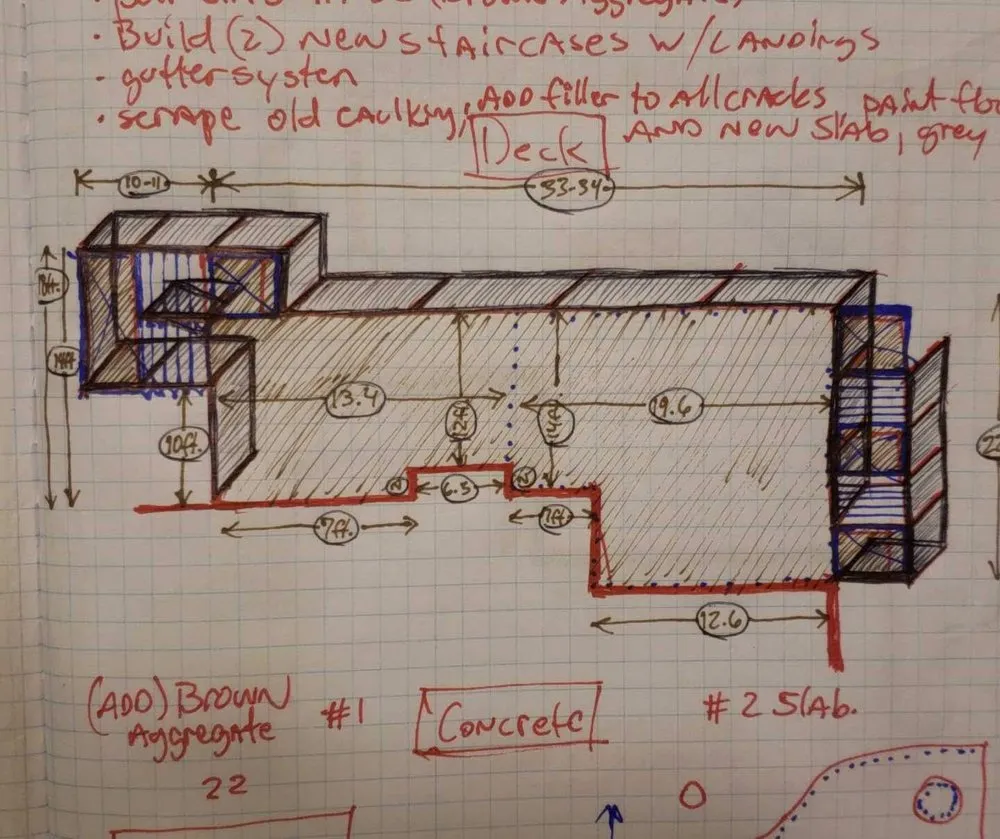 • Build (2) New Staircases w/LANDINGS
• gutter systen
• scrape old caulking, ADD filler to All cracks, paint flo
AND New Slab, grey
Deck
10-11
33-34
13.4
12ft
14ft
19.6
10ft.
2
N
6.5
N
7ft.
7ft.
12.6
(ADD) Brown
Aggregate
#1
Concrete
#2 Slab.
22